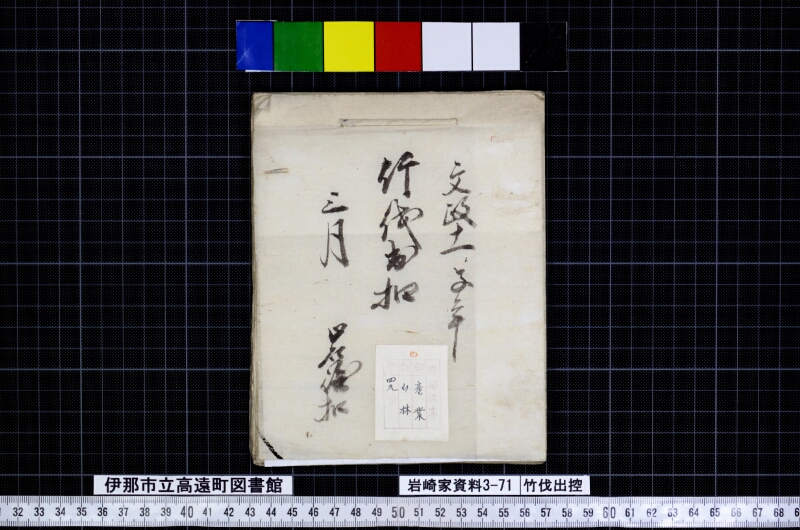 文政十一子年
竹伐出扣
三月
産業
山林
四九
伊那市立高遠町図書館
岩崎家資料3-71
竹伐出控
32 33 34 35 36 37 38 39 40 41 42 43 44 45 46 47 48 49 50 51 52 53 54 55 56 57 58 59 60 61 62 63 64 65 66 67 68 6